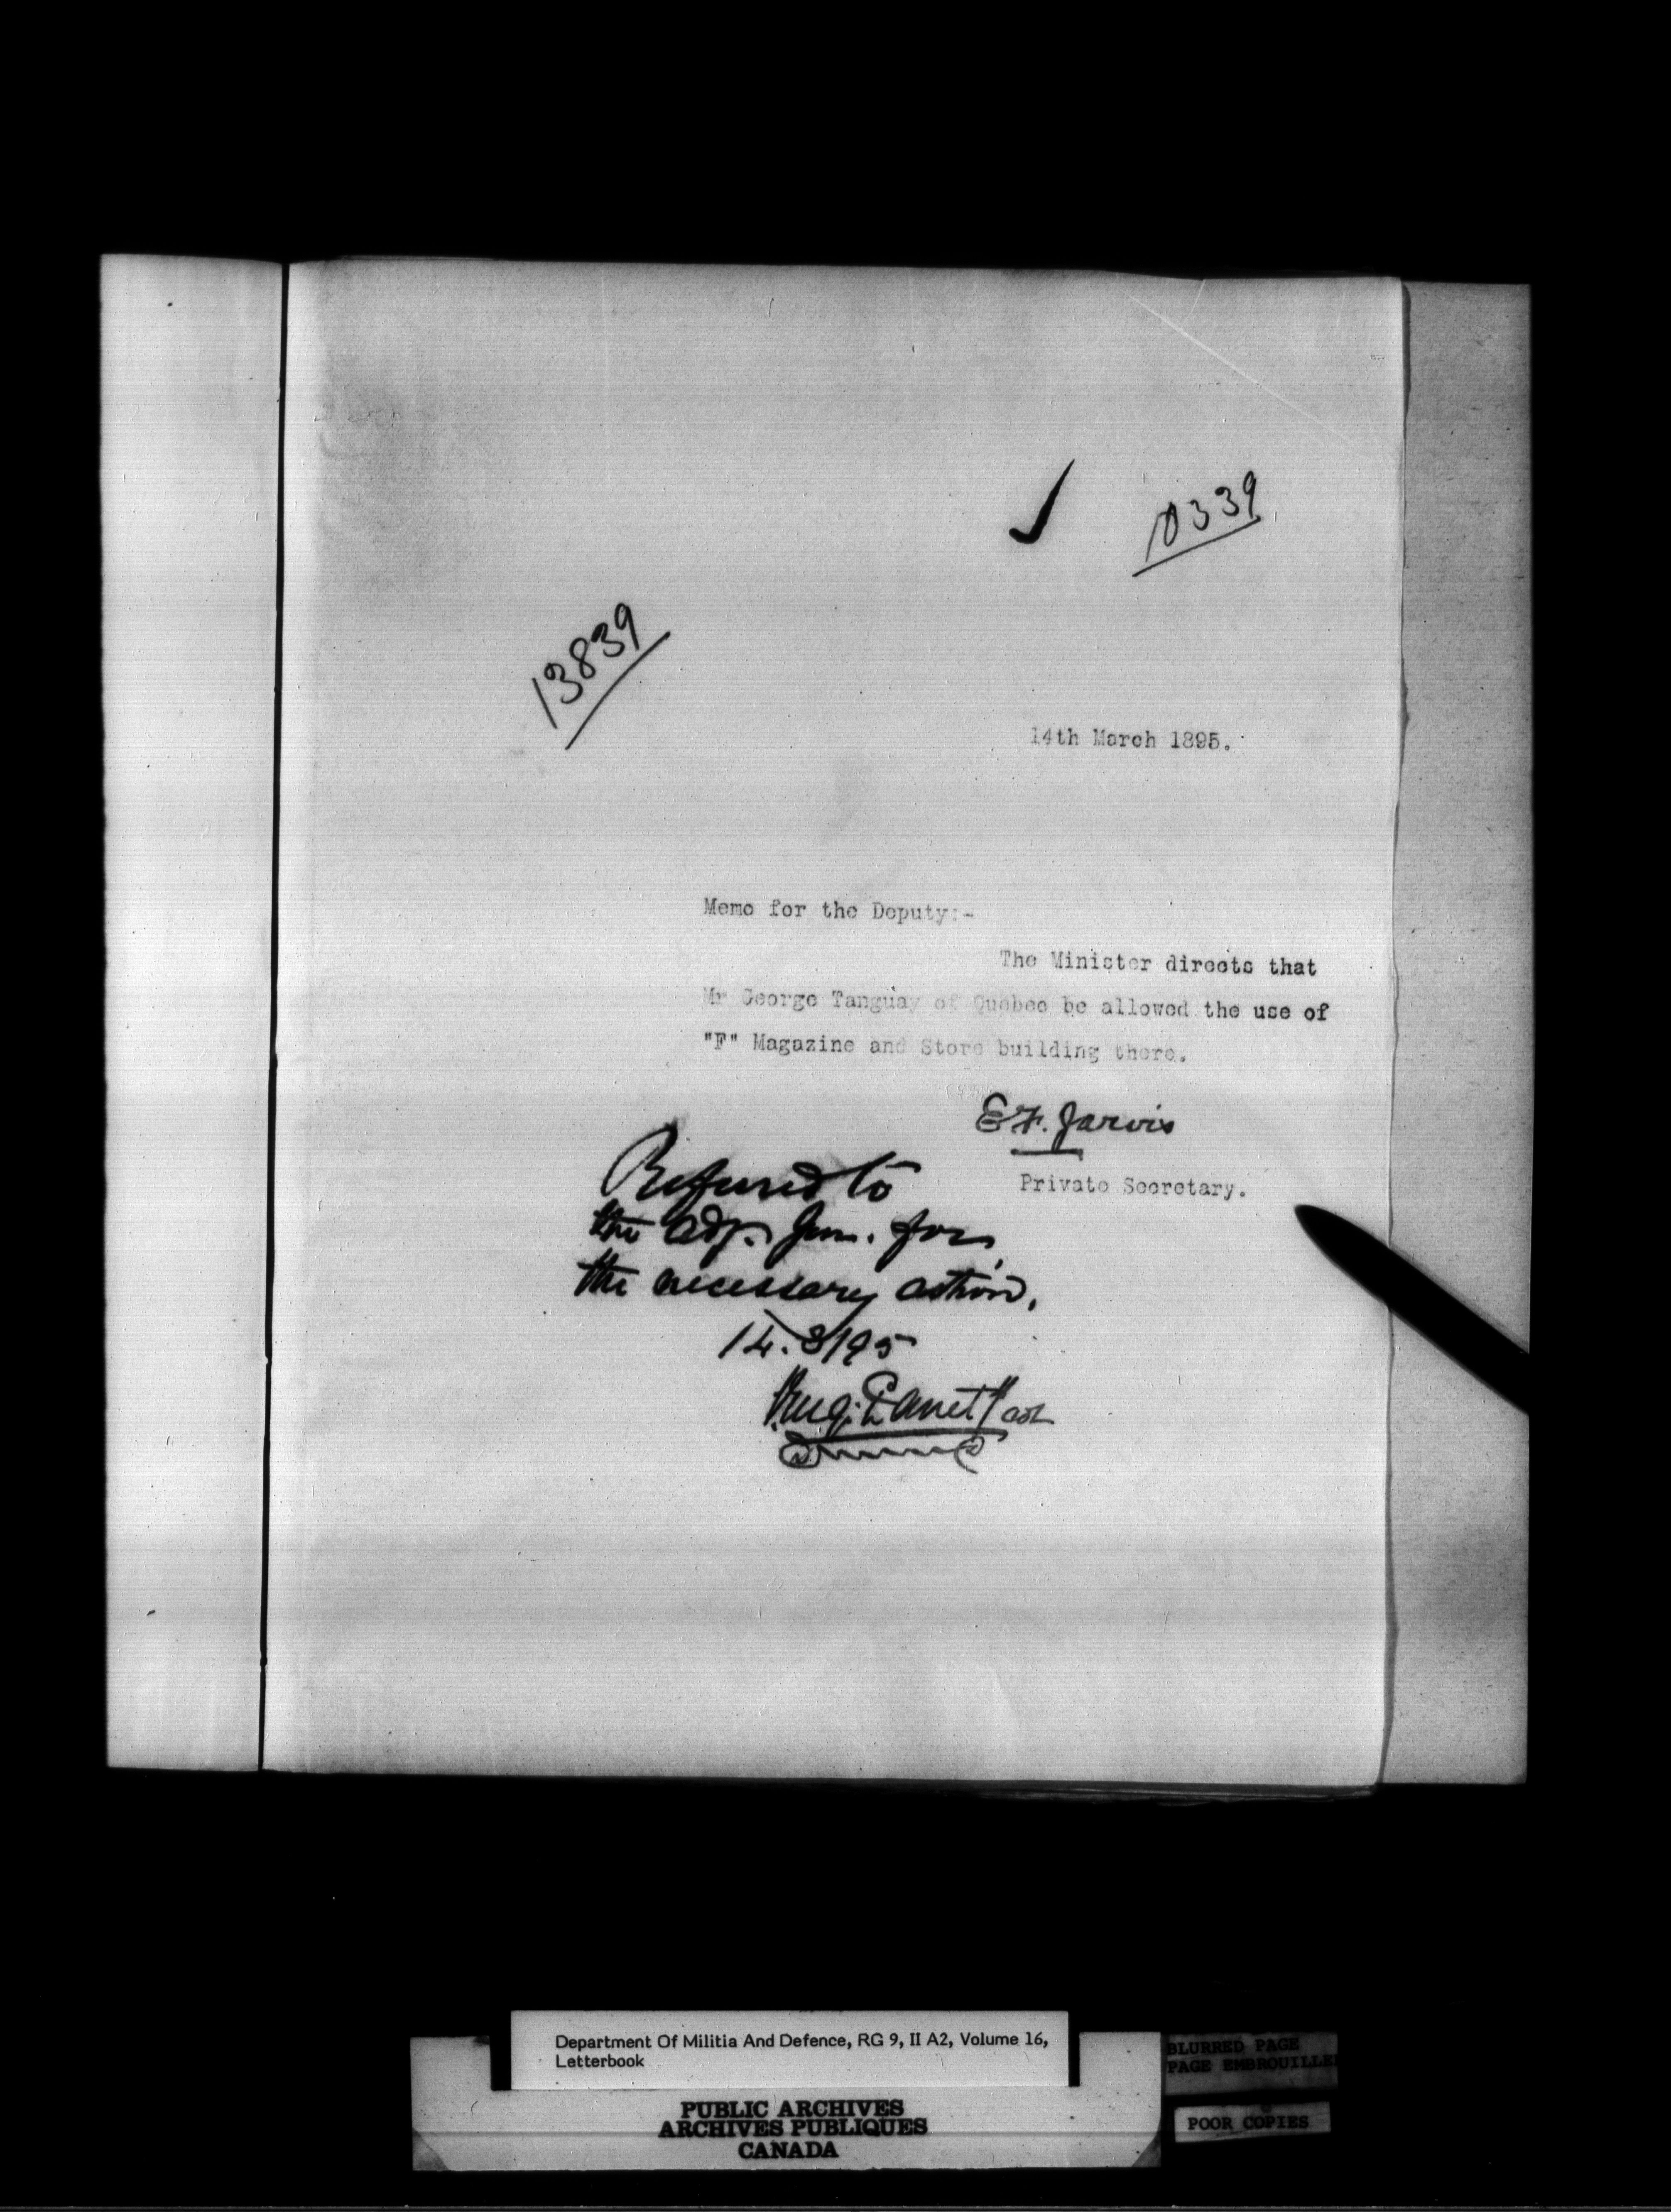 10339
13839
14th March 1895.
Memo for the Deputy:-
The Minister directs that
Mr George Tanguay of Quebec be allowed the use of
"F" Magazine and Store building there.
E F. Jarvis
Private Secretary.
Referred to
the Adj. Gen. for
the necessary action.
14.3/95
Panet
Col
Department Of Militia And Defence, RG 9, II A2, Volume 16,
Letterbook
PUBLIC ARCHIVES
ARCHIVES PUBLIQUES
CANADA
BLURRED PAGE
PAGE EMBROUILLEE
POOR COPIES